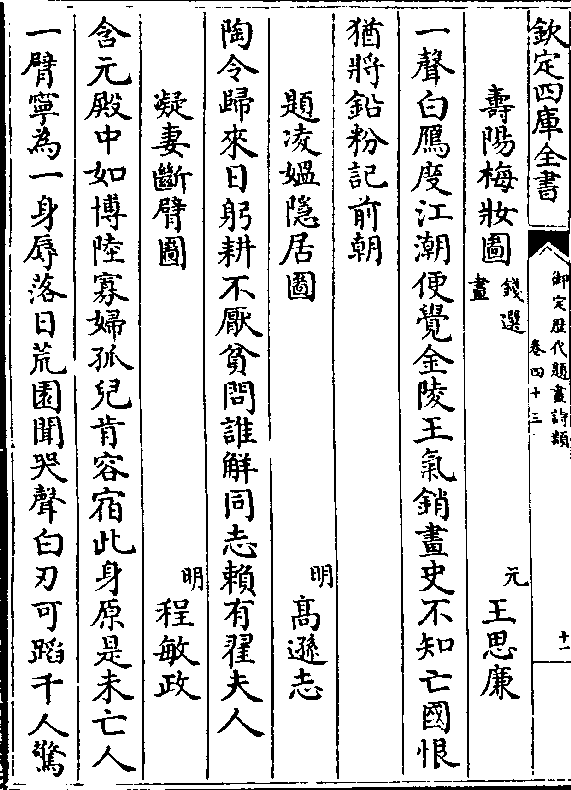 欽定四庫全書
御定歴代題畫詩類
卷四十三
十一
壽陽梅妝圖
錢選
畫
元
王思廉
一聲白鴈度江潮便覺金陵王氣銷畫史不知亡國恨
猶將鉛粉記前朝
題凌媪隠居圖
明
髙遜志
陶令歸來日躬耕不厭貧問誰解同志賴有翟夫人
凝妻斷臂圖
明
程敏政
含元殿中如博陸寡婦孤兒肯容宿此身原是未亡人
一臂寧為一身辱落日荒園聞哭聲白刃可蹈千人驚